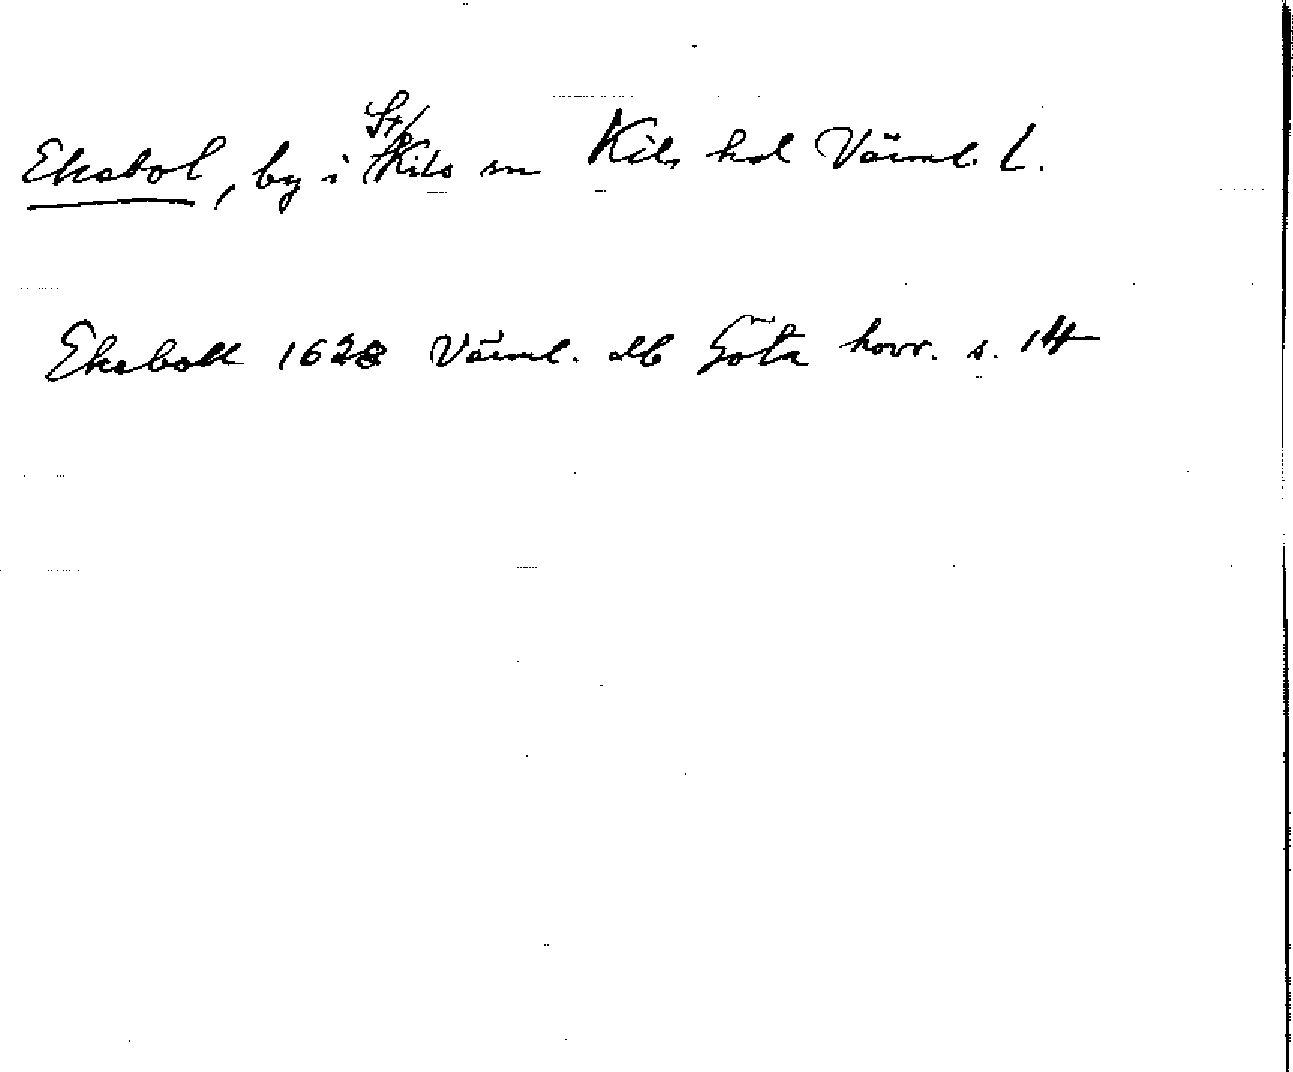 Eksbol, by i St. Kils sn Kils hd Värml. L.
Eksboll 1628 Värml. db Göta hovr. s. 14